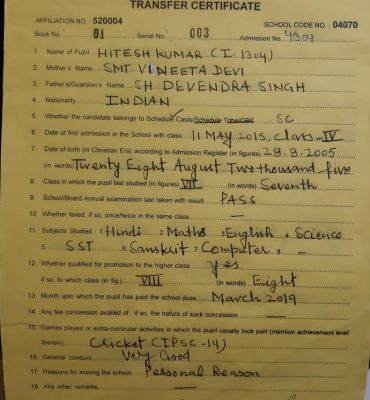 TRANSFER CERTIFICATE
AFFILIATION NO. 520004 SCHOOL CODE NO. 04070
Book No. 01 Serial No. 003 Admission No. 1304
1. Name of Pupil HITESH KUMAR (I. 1304)
2. Mother's Name SMT VINEETA DEVI
3. Father's/Guardian's Name SH DEVENDRA SINGH
4. Nationality INDIAN
5. Whether the candidate belongs to Schedule Caste/Schedule Tribe/OBC SC
6. Date of first admission in the School with class 11 MAY 2015, Class-IV
7. Date of birth (in Christian Era) according to Admission Register (in figures) 28.8.2005
(in words) Twenty Eight August Two thousand five
8. Class in which the pupil last studied (in figures) VII (in words) Seventh
9. School/Board Annual examination last taken with result PASS
10. Whether failed, if so, once/twice in the same class —
11. Subjects Studied 1 Hindi 2 Maths 3 English 4 Science
5 SST 6 Sanskrit 7 Computer 8 —
12. Whether qualified for promotion to the higher class yes
if so, to which class (in fig.) VIII (in words) Eight
13. Month upto which the pupil has paid the school dues March 2019
14. Any fee concession availed of : if so, the nature of such concession —
15. Games played or extra-curricular activities in which the pupil usually took part (mention achievement level
therein) Cricket (IPSC-14)
16. General conduct Very Good
17. Reasons for leaving the school Personal Reason
18. Any other remarks —